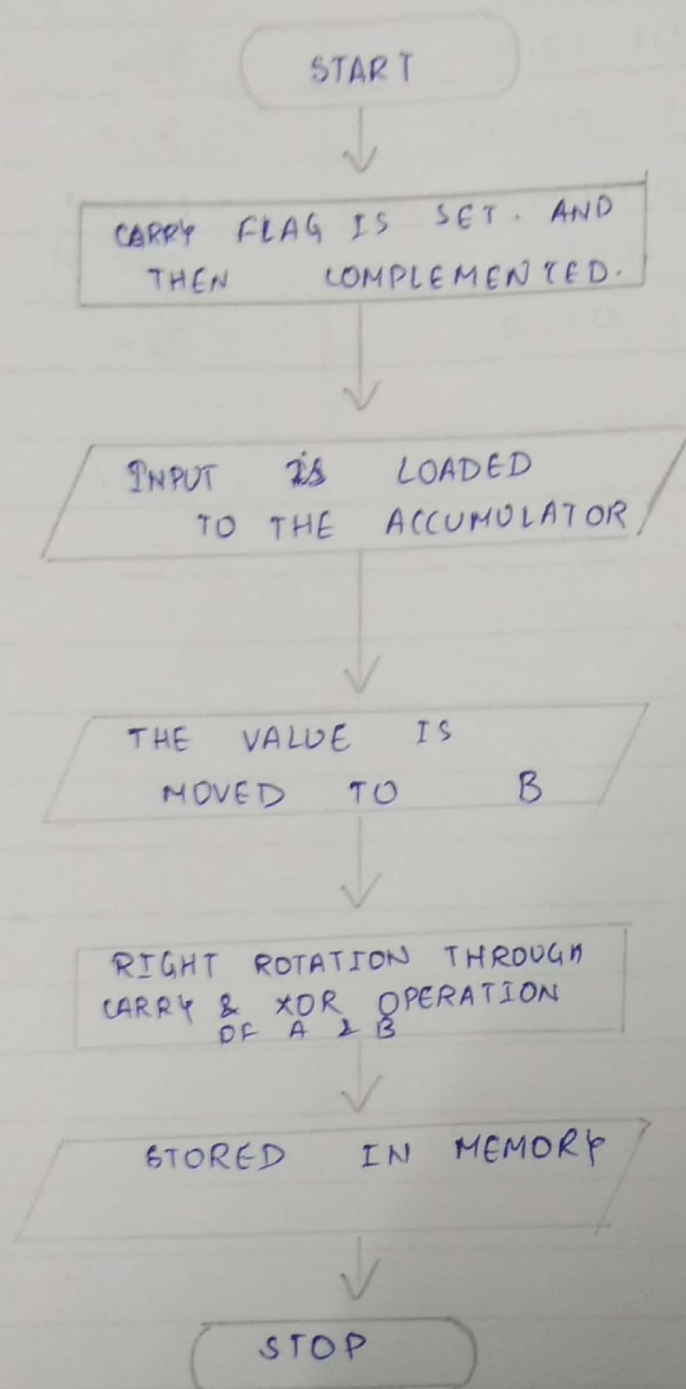 START
CARRY FLAG IS SET. AND
THEN COMPLEMENTED.
INPUT IS LOADED
TO THE ACCUMULATOR
THE VALUE IS
MOVED TO B
RIGHT ROTATION THROUGH
CARRY & XOR OPERATION
OF A & B
STORED IN MEMORY
STOP